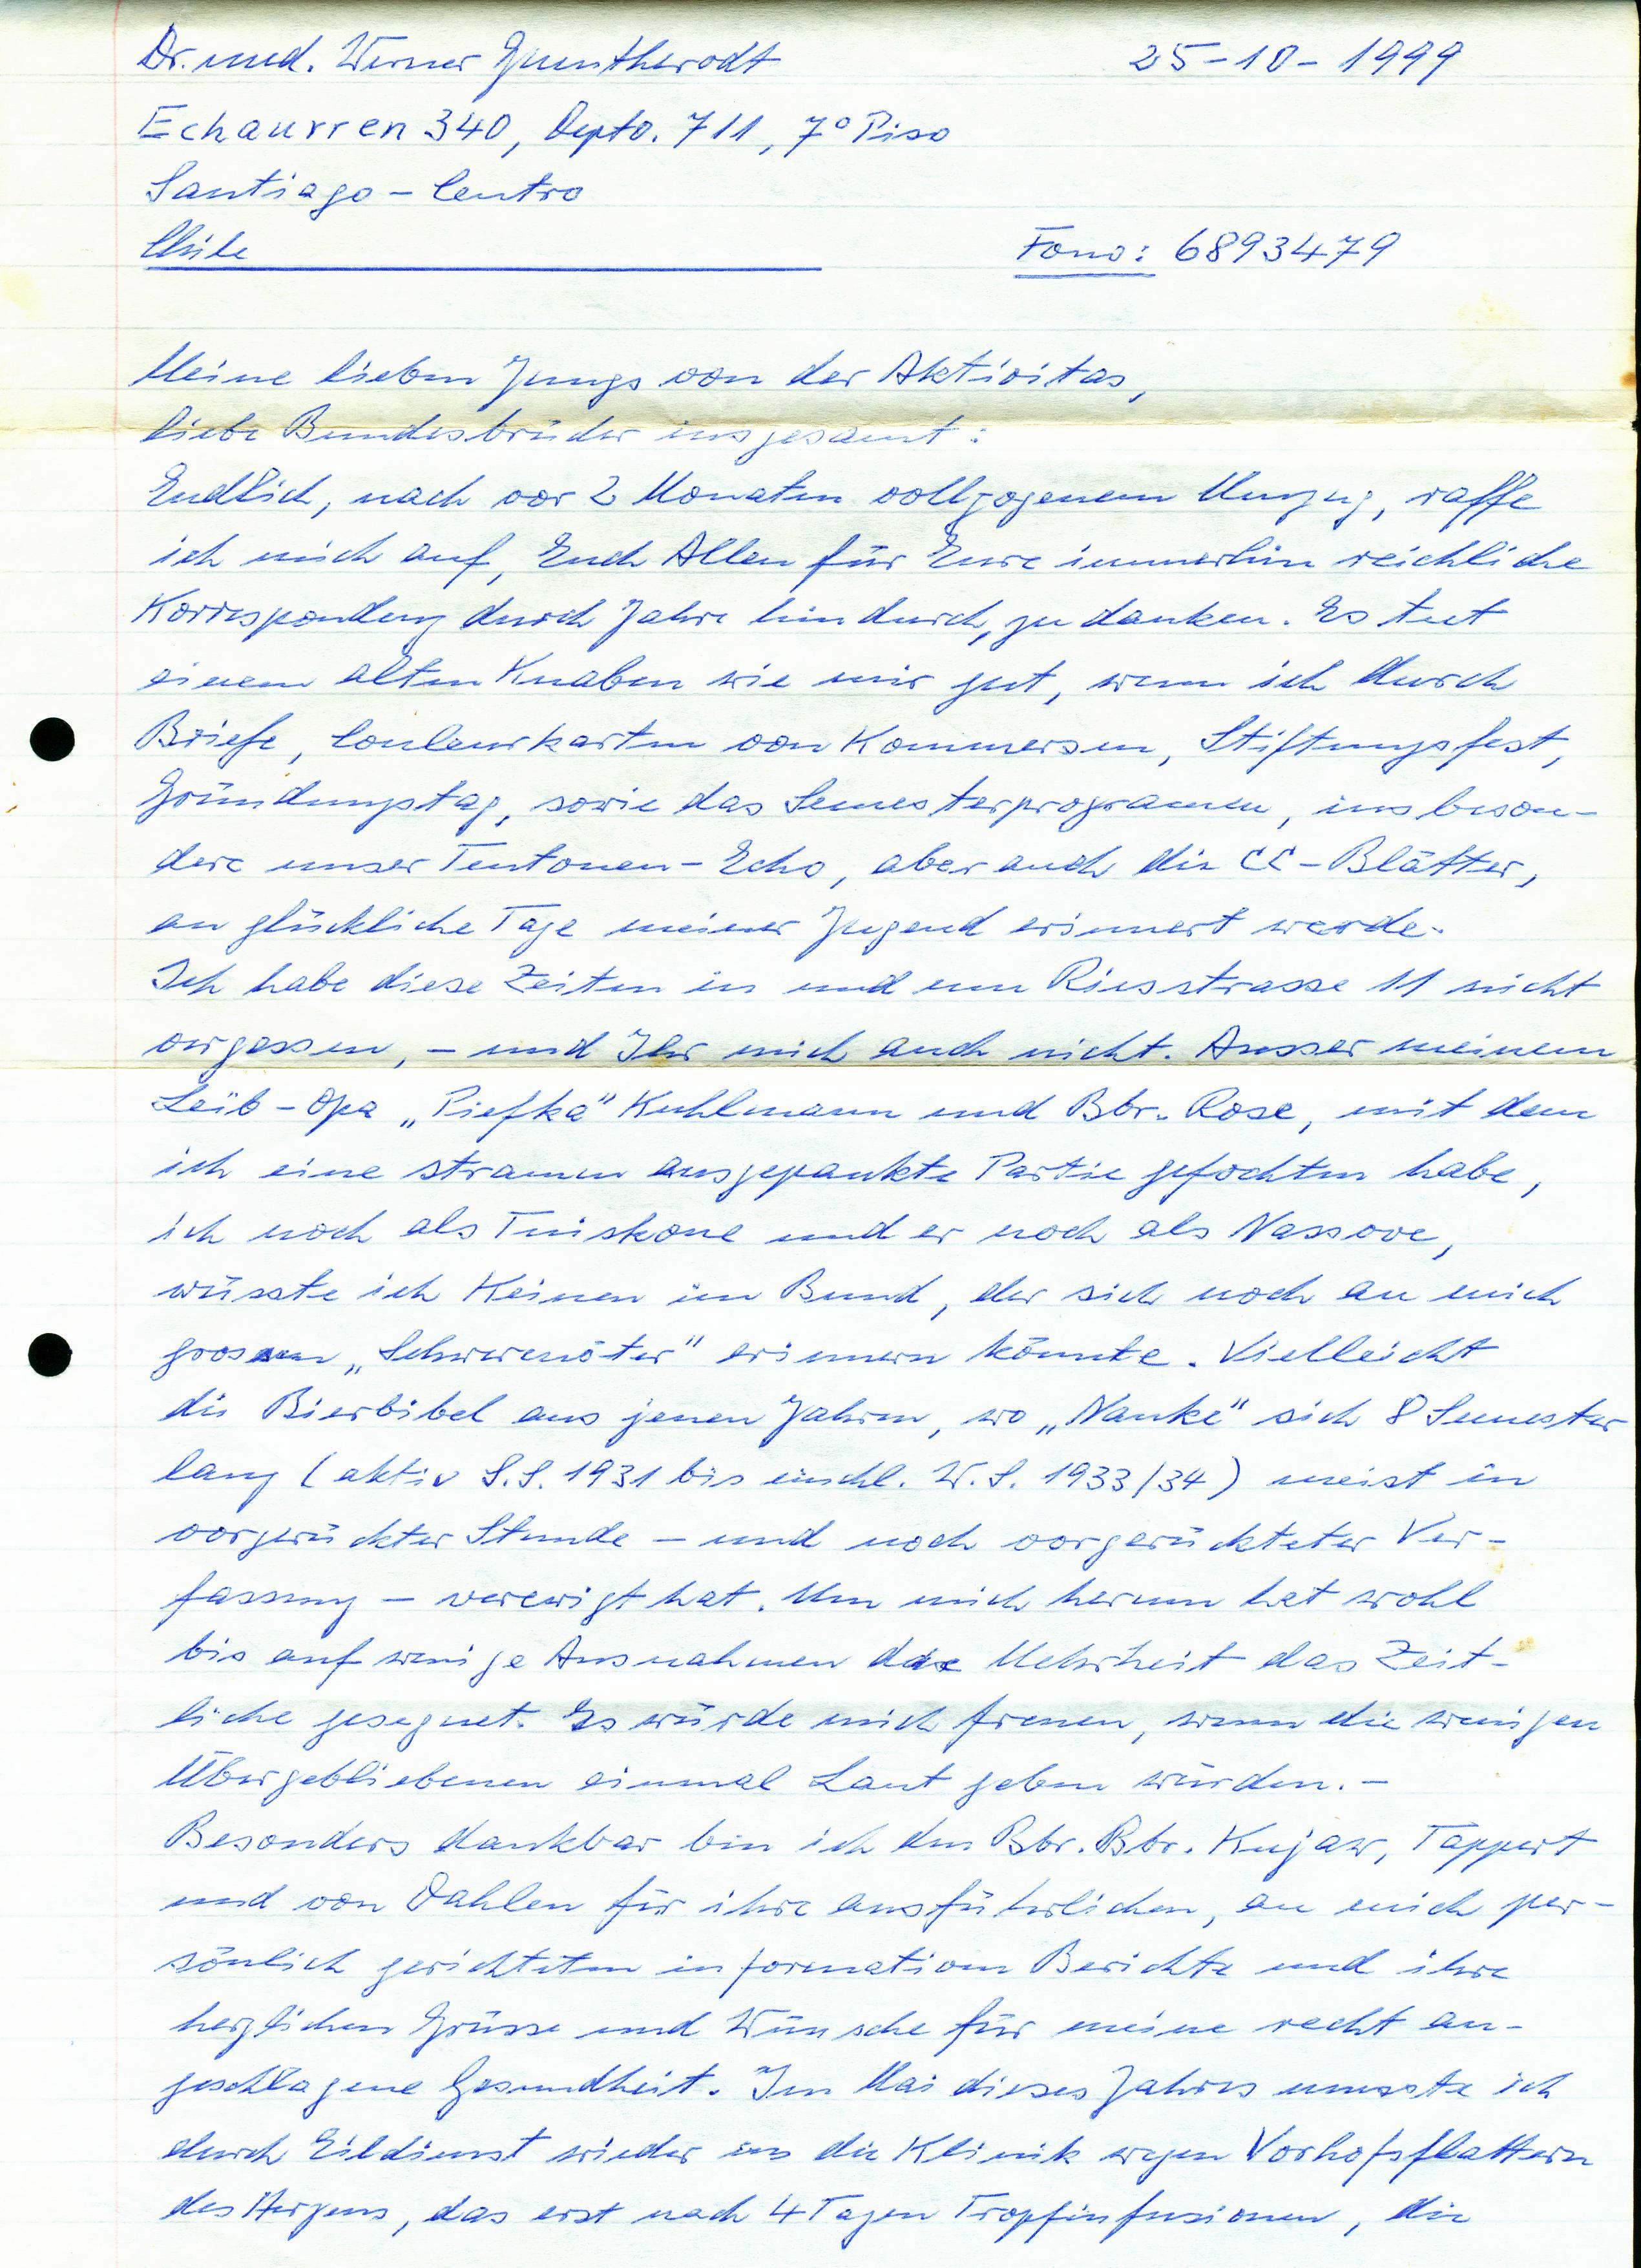 Dr. med. Werner Guentherodt 25-10-1999
Echaurren 340, Depto. 711, 7º Piso
Santiago - Centro
Chile Fono: 6893479
Meine lieben Jungs von der Aktivitas,
liebe Bundesbrüder insgesamt:
Endlich, nach vor 2 Monaten vollzogenem Umzug, raffe
ich mich auf, Euch Allen für Eure immerhin reichliche
Korrespondenz durch Jahre hindurch, zu danken. Es tut
einem alten Knaben wie mir gut, wenn ich durch
Briefe, Couleurkarten von Kommersen, Stiftungsfest,
Gründungstag, sowie das Semesterprogramm, insbeson-
dere unser Teutonen-Echo, aber auch die CC-Blätter,
an glückliche Tage meiner Jugend erinnert werde.
Ich habe diese Zeiten in und um Riesstrasse 11 nicht
vergessen, - und Ihr mich auch nicht. Ausser meinem
Leib-Opa „Piefke" Kuhlmann und Bbr. Rose, mit dem
ich eine stramm ausgepaukte Partie gefochten habe,
ich noch als Tuiskone und er noch als Nassove,
wüsste ich Keinen im Bund, der sich noch an mich
„Schwerenöter" erinnern könnte. Vielleicht
die Bierbibel aus jenen Jahren, wo „Nauke" sich 8 Semester
lang (aktiv S.S. 1931 bis einschl. W.S. 1933/34) meist in
vorgerückter Stunde - und noch vorgerückteter Ver-
fassung - verewigt hat. Um mich herum hat wohl
bis auf wenige Ausnahmen die Mehrheit das Zeit-
liche gesegnet. Es würde mich freuen, wenn die wenigen
Übergebliebenen einmal Laut geben würden. -
Besonders dankbar bin ich den Bbr. Bbr. Kujaw, Tappert
und von Dahlen für ihre ausführlichen, an mich per-
sönlich gerichteten informativen Berichte und ihre
herzlichen Grüsse und Wünsche für meine recht an-
geschlagene Gesundheit. Im Mai dieses Jahres musste ich
durch Eildienst wieder in die Klinik wegen Vorhofsflattern
des Herzens, das erst nach 4 Tagen Tropfinfusionen, die